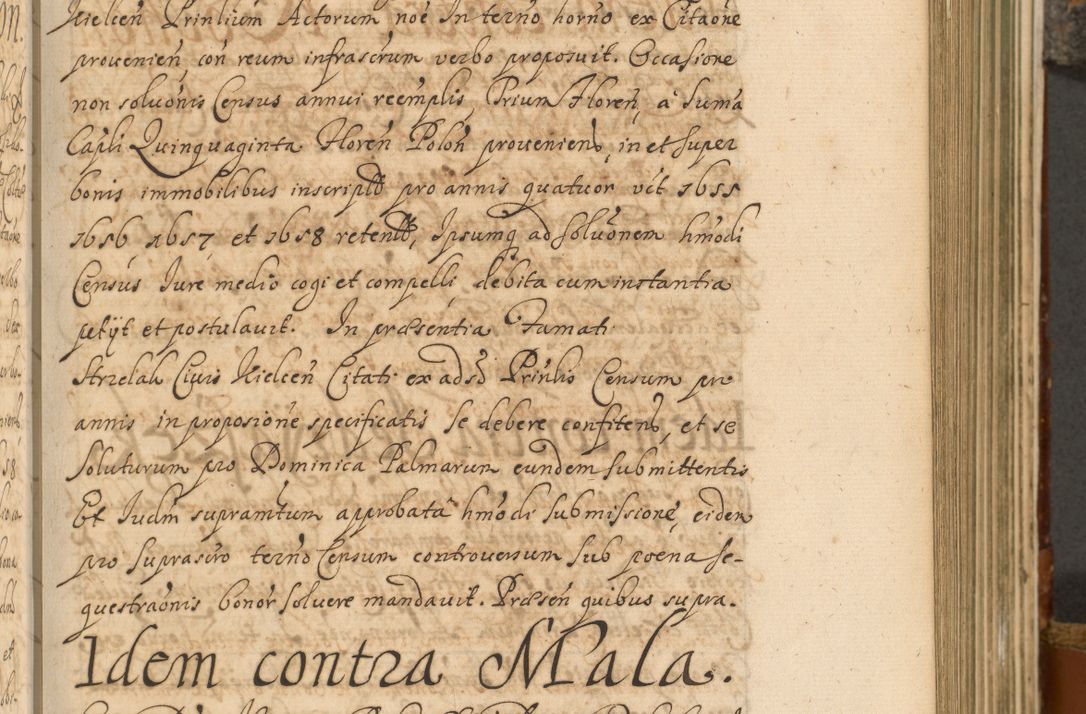 Kielceñ Prinlium Actorum noê In termo horno ex Citaoñe
provenieñ, coñ reum infrascrum verbo proposuit. Occasione
non solvonis Census annui reemplis, Trium Floreñ, a Suma
Capli Quinquaginta Floreñ Poloñ provenieñ, in et super
bonis immobilibus inscript pro annis quatuor vct 1655
1656 1657 et 1658 retent, Ipsumq ad solvonem hmodi
Census Iure medio cogi et compelli debita cum instantia
petijt et postulavit. In præsentia Famati
Strzelak Civis Kielceñ Citati ex adso Prinlio Censum pro
annis in proposione specificatis se debere confiteñ, et se
soluturum pro Dominica Palmarum eundem submittentis
Et Iudm supramtum approbata hmodi submissione, eidem
pro suprascro termo Censum controversum sub poena se-
questraonis bonor solvere mandavit. Præseñ quibus supra.
Idem contra Mala.